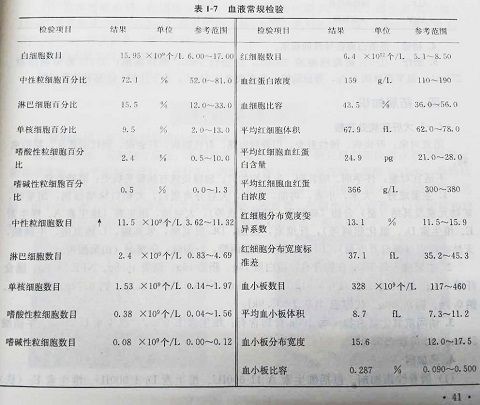 表 1-7 血液常规检验
检验项目 结果 单位 参考范围 检验项目 结果 单位 参考范围
白细胞数目 15.95 ×10⁹个/L 6.00~17.00 红细胞数目 6.4 ×10¹²个/L 5.1~8.50
中性粒细胞百分比 72.1 % 52.0~81.0 血红蛋白浓度 159 g/L 110~190
淋巴细胞百分比 15.5 % 12.0~33.0 血细胞比容 43.5 % 36.0~56.0
单核细胞百分比 9.5 % 2.0~13.0 平均红细胞体积 67.9 fL 62.0~78.0
嗜酸性粒细胞百分比 2.4 % 0.5~10.0 平均红细胞血红蛋白含量 24.9 pg 21.0~28.0
嗜碱性粒细胞百分比 0.5 % 0.0~1.3 平均红细胞血红蛋白浓度 366 g/L 300~380
中性粒细胞数目 ↑ 11.5 ×10⁹个/L 3.62~11.32 红细胞分布宽度变异系数 13.1 % 11.5~15.9
淋巴细胞数目 2.4 ×10⁹个/L 0.83~4.69 红细胞分布宽度标准差 37.1 fL 35.2~45.3
单核细胞数目 1.53 ×10⁹个/L 0.14~1.97 血小板数目 328 ×10⁹个/L 117~460
嗜酸性粒细胞数目 0.38 ×10⁹个/L 0.04~1.56 平均血小板体积 8.7 fL 7.3~11.2
嗜碱性粒细胞数目 0.08 ×10⁹个/L 0.00~0.12 血小板分布宽度 15.6 12.0~17.5
血小板比容 0.287 % 0.090~0.500
· 41 ·